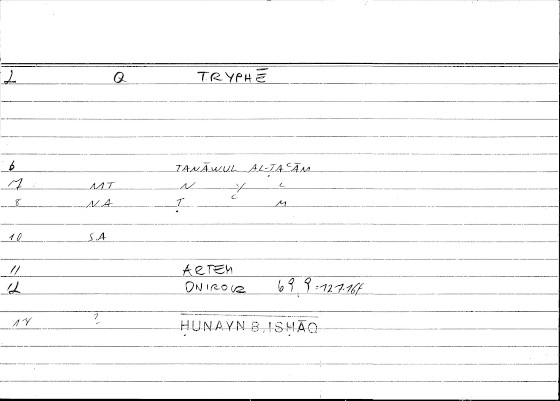 L Q TRYPHĒ
6 TANĀWUL AL-ṬAʿĀM
7 MT N W L
8 NA Ṭ ʿ M
10 SA
11 ARTEM
12 ONIROCR 69,9 = 127.164
14 ? ḤUNAYN B. ISḤĀQ